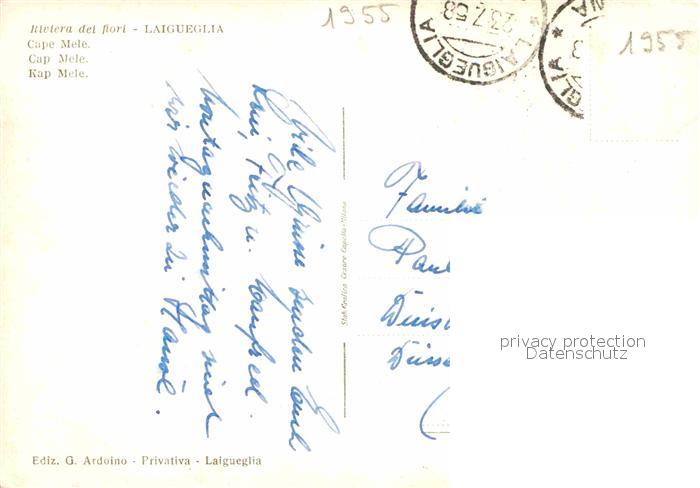 Riviera dei fiori - LAIGUEGLIA
Cape Mele.
Cap Mele.
Kap Mele.
1955
LAIGUEGLIA
23.7.58
GLIA
1955
Viele Grüsse senden Euch
Fritz u. Manfred.
Montagnachmittag sind
wir wieder zu Hause.
Stab. Grafico Cesare Capello - Milano
Familie
Paul
Duis
Düsse
privacy protection
Datenschutz
Ediz. G. Ardoino - Privativa - Laigueglia